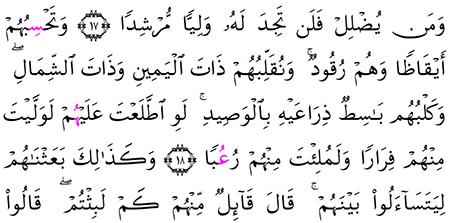 وَمَن يُضۡلِلۡ فَلَن تَجِدَ لَهُۥ وَلِيّٗا مُّرۡشِدٗا ١٧ وَتَحۡسِبُهُمۡ
أَيۡقَاظٗا وَهُمۡ رُقُودٞۚ وَنُقَلِّبُهُمۡ ذَاتَ ٱلۡيَمِينِ وَذَاتَ ٱلشِّمَالِۖ
وَكَلۡبُهُم بَٰسِطٞ ذِرَاعَيۡهِ بِٱلۡوَصِيدِۚ لَوِ ٱطَّلَعۡتَ عَلَيۡهِمۡ لَوَلَّيۡتَ
مِنۡهُمۡ فِرَارٗا وَلَمُلِئۡتَ مِنۡهُمۡ رُعُبٗا ١٨ وَكَذَٰلِكَ بَعَثۡنَٰهُمۡ
لِيَتَسَآءَلُواْ بَيۡنَهُمۡۚ قَالَ قَآئِلٞ مِّنۡهُمۡ كَمۡ لَبِثۡتُمۡۖ قَالُواْ